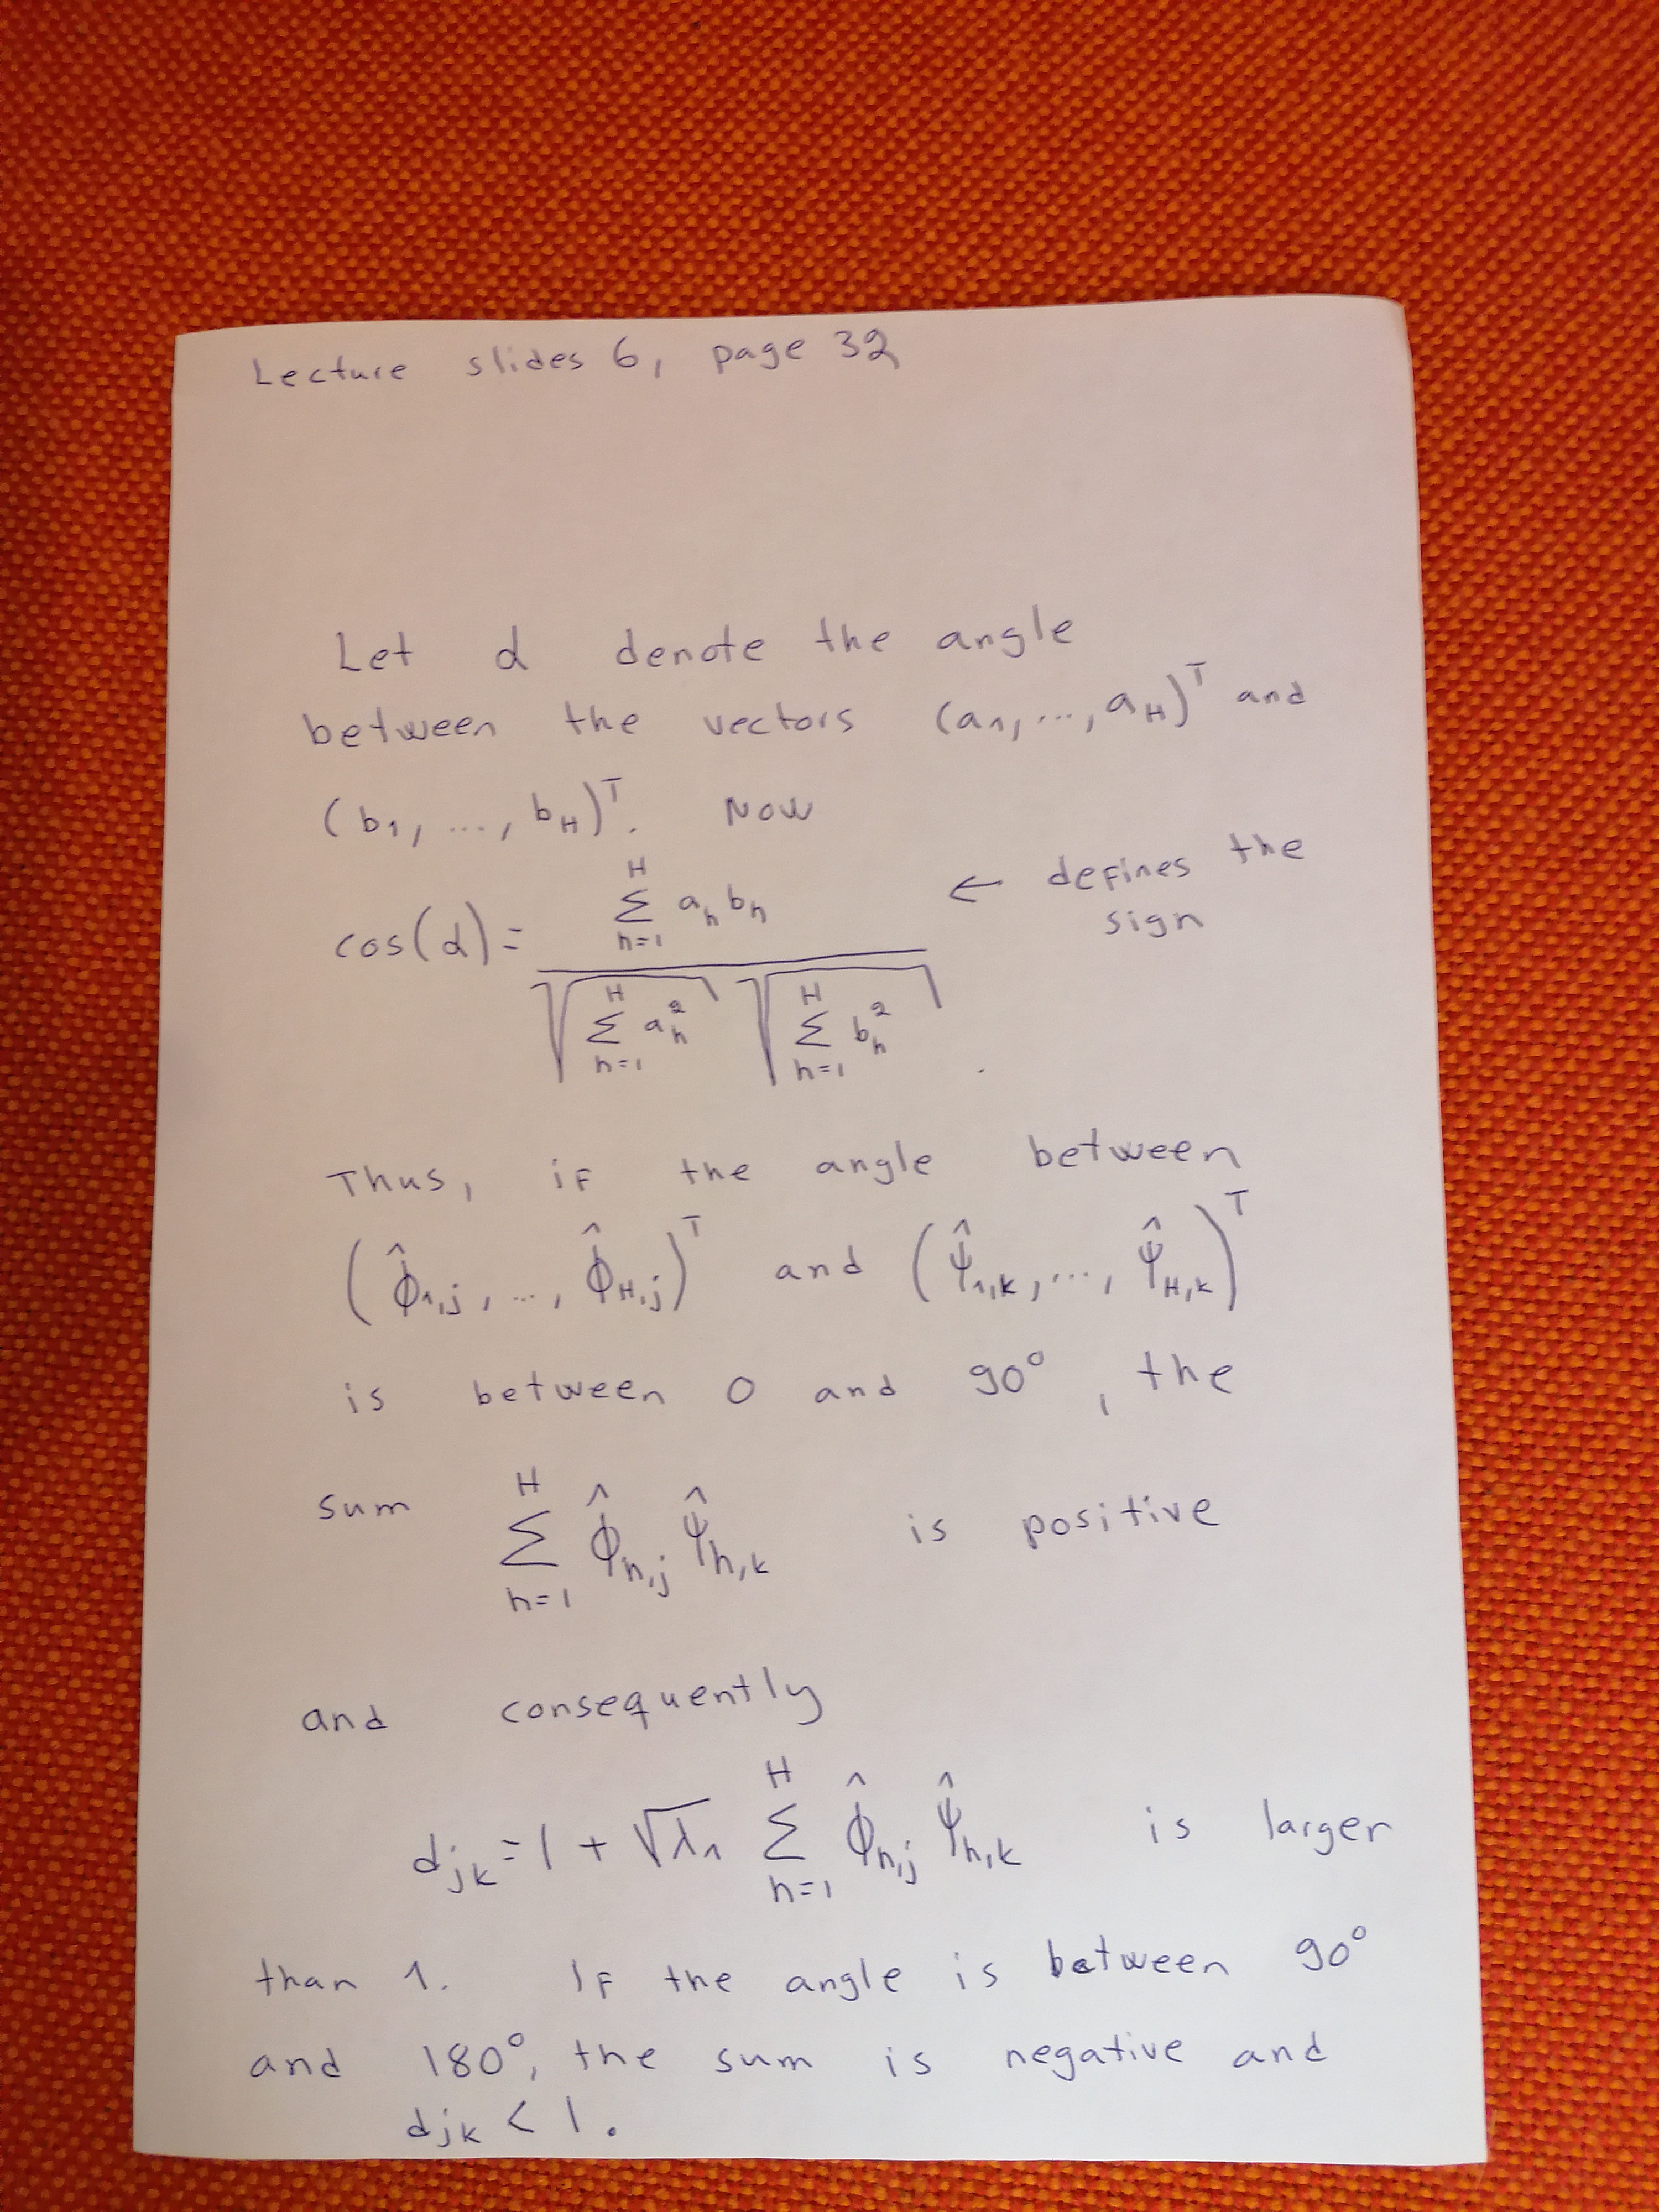 Lecture slides 6, page 32
Let α denote the angle
between the vectors (a₁, ..., a_H)ᵀ and
(b₁, ..., b_H)ᵀ. Now
cos(α) = \frac{\sum_{h=1}^{H} a_h b_h}{\sqrt{\sum_{h=1}^{H} a_h^2} \sqrt{\sum_{h=1}^{H} b_h^2}} . ← defines the
sign
Thus, if the angle between
(\hat{ϕ}_{1,j}, ..., \hat{ϕ}_{H,j})ᵀ and (\hat{ψ}_{1,k}, ..., \hat{ψ}_{H,k})ᵀ
is between 0 and 90°, the
sum \sum_{h=1}^{H} \hat{ϕ}_{h,j} \hat{ψ}_{h,k} is positive
and consequently
d_{jk} = 1 + \sqrt{λ₁} \sum_{h=1}^{H} \hat{ϕ}_{h,j} \hat{ψ}_{h,k} is larger
than 1. If the angle is between 90°
and 180°, the sum is negative and
d_{jk} < 1.